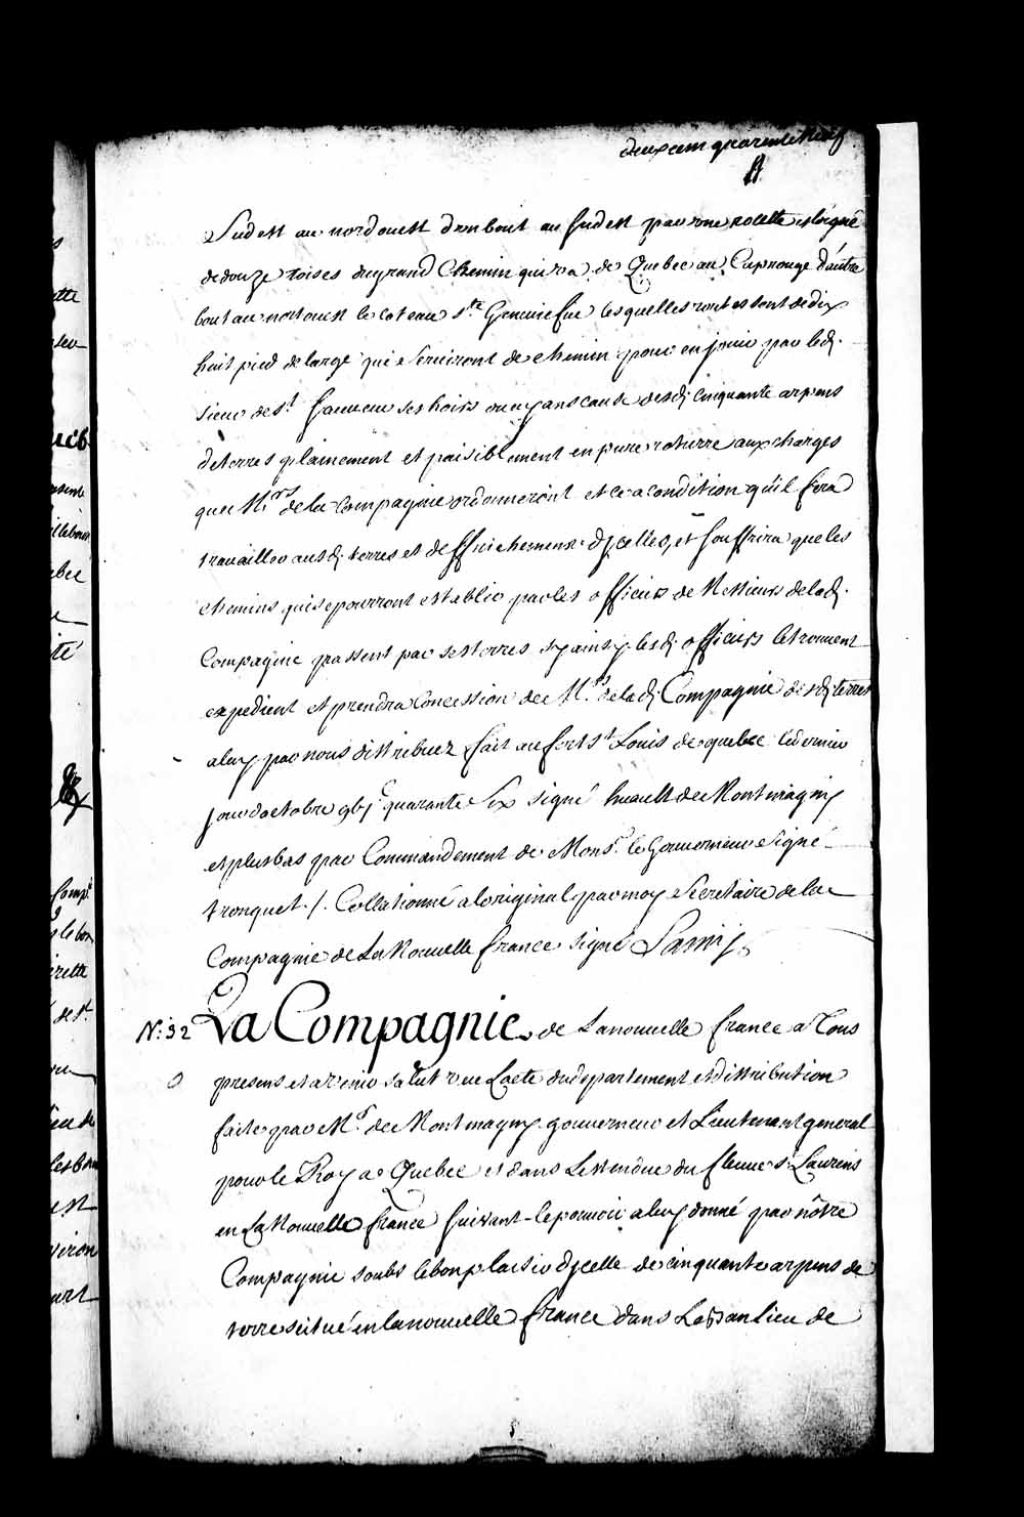 deux cent quarante neuf
Sud est au nordouest d'un bout au sud est par une routte esloigné
de douze toises du grand Chemin qui va de Quebec au Caprouge d'autre
bout au nortouest le coteau Ste Genevieſve lesquelles routes sont de dix
huit pied de large qui serviront de chemin pour en jouir par led.
Sieur de St. Sauveur ses hoirs ou ayans cause desd. cinquante arpens
de terres plainement et paisiblement en pure roturre aux charges
que Mrs. de la Compagnie ordonneront et ce a condition qu'il fera
travailler ausd. terres et deffrichement d'jcelles, et souffrira que les
chemins qui se pourront establir par les officiers de Messieurs de lad.
Compagnie passent par ses terres sy ainsy lesd. officiers le trouvent
expedient et prendra Concession de Mrs. de lad. Compagnie desd. terres
a luy par nous distribuez fait au fort St Louis de quebec le dernier
jour d'octobre gbjc quarante Six signé huault de Montmagny
et plus bas par Commandement de Monsr. le Gouverneur Signé
tronquet ./. Collationné a l'original par moy Secretaire de la
Compagnie de La Nouvelle france signé Lamij
N.º 32 La Compagnie de La nouvelle france a Tous
presens et a venir salut veu Lacte du departement et distribution
faite par Mr. de Montmagny gouverneur et Lieutenant general
pour le Roy a Quebec et dans Lestendue du fleuve St Laurens
en La Nouvelle france suivant le pouvoir a luy donné par nôtre
Compagnie soubs le bon plaisir d'jcelle de cinquante arpens de
terre scitué en la nouvelle france dans La banlieu de